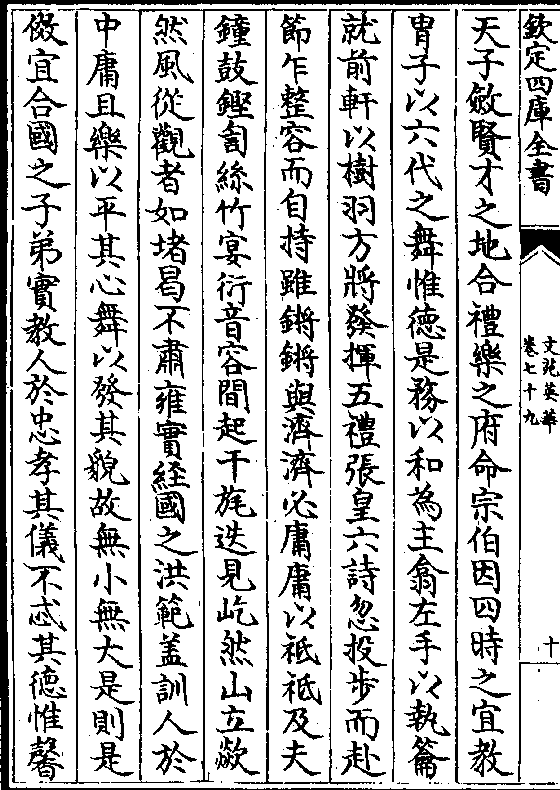 欽定四庫全書
文苑英華
卷七十九
十
天子敛賢才之地合禮樂之府命宗伯因四時之宜教
胄子以六代之舞惟德是務以和為主翕左手以執籥
就前軒以樹羽方將發揮五禮張皇六詩忽投步而赴
節乍整容而自持雖鏘鏘與濟濟必庸庸以祗祗及夫
鐘鼓鏗訇絲竹宴衎音容間起干旄迭見屹然山立歘
然風從觀者如堵曷不肅雍實経國之洪範盖訓人於
中庸且樂以平其心舞以發其貌故無小無大是則是
傚宜合國之子弟實教人於忠孝其儀不忒其德惟馨